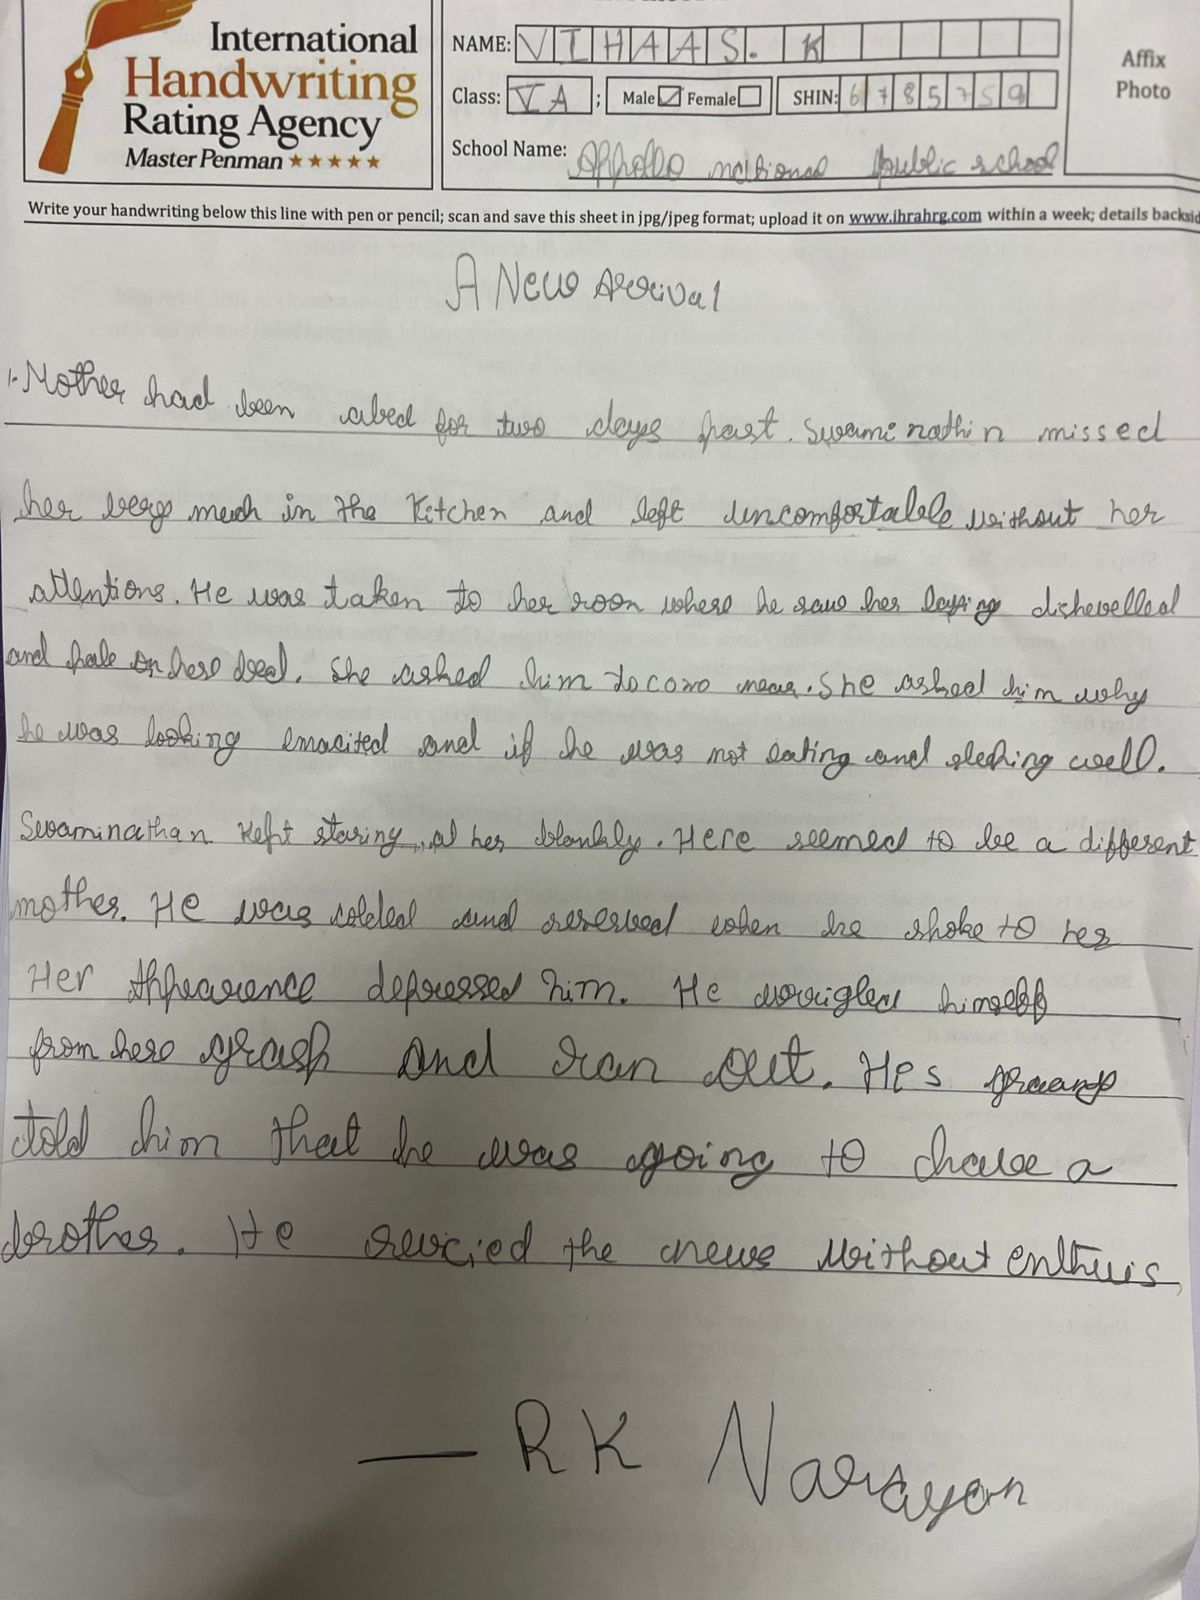 International
Handwriting
Rating Agency
Master Penman ★★★★★
NAME: VIHAAS. K
Class: V A ; Male ☑ Female ☐ SHIN: 6785759
School Name: Appollo national public school
Affix
Photo
Write your handwriting below this line with pen or pencil; scan and save this sheet in jpg/jpeg format; upload it on www.ihrahrg.com within a week; details backsid
A New Arrival
1. Mother had been abed for two days past. Swaminathin missed
her very much in the Kitchen and left uncomfortable without her
attentions. He was taken to her roon where he saw her laying dishevelled
and pale on her bed. She asked him to near. She asked him why
he was looking emacited and if he was not eating and sleping well.
Swaminathan Kept staring at her blankly. Here seemed to be a different
mother. He was colded and reserved when he spoke to her
Her Appearence depressed him. He wrrigled himself
from her grasp and ran out. His
told him that he was going to have a
brother. He the news without enthuis
— RK Narayan